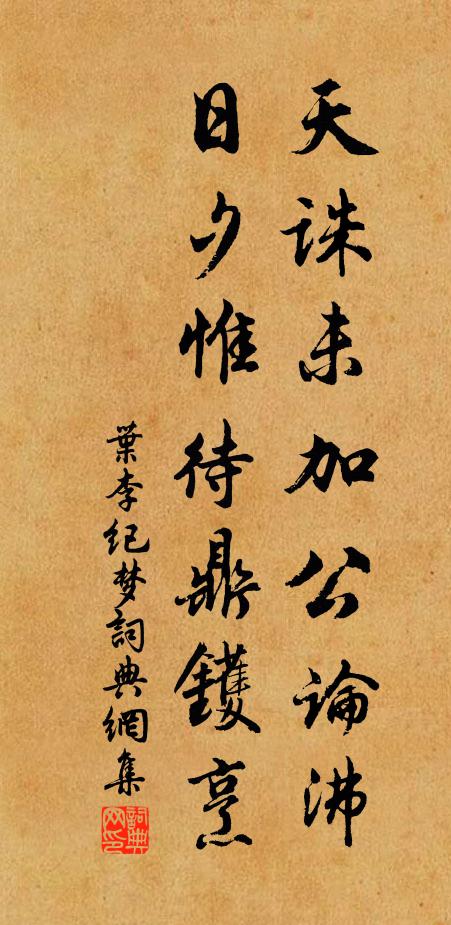 天誅未加公論沸
日夕惟待鼎鑊烹
葉李纪梦詞典網集
詞典网印